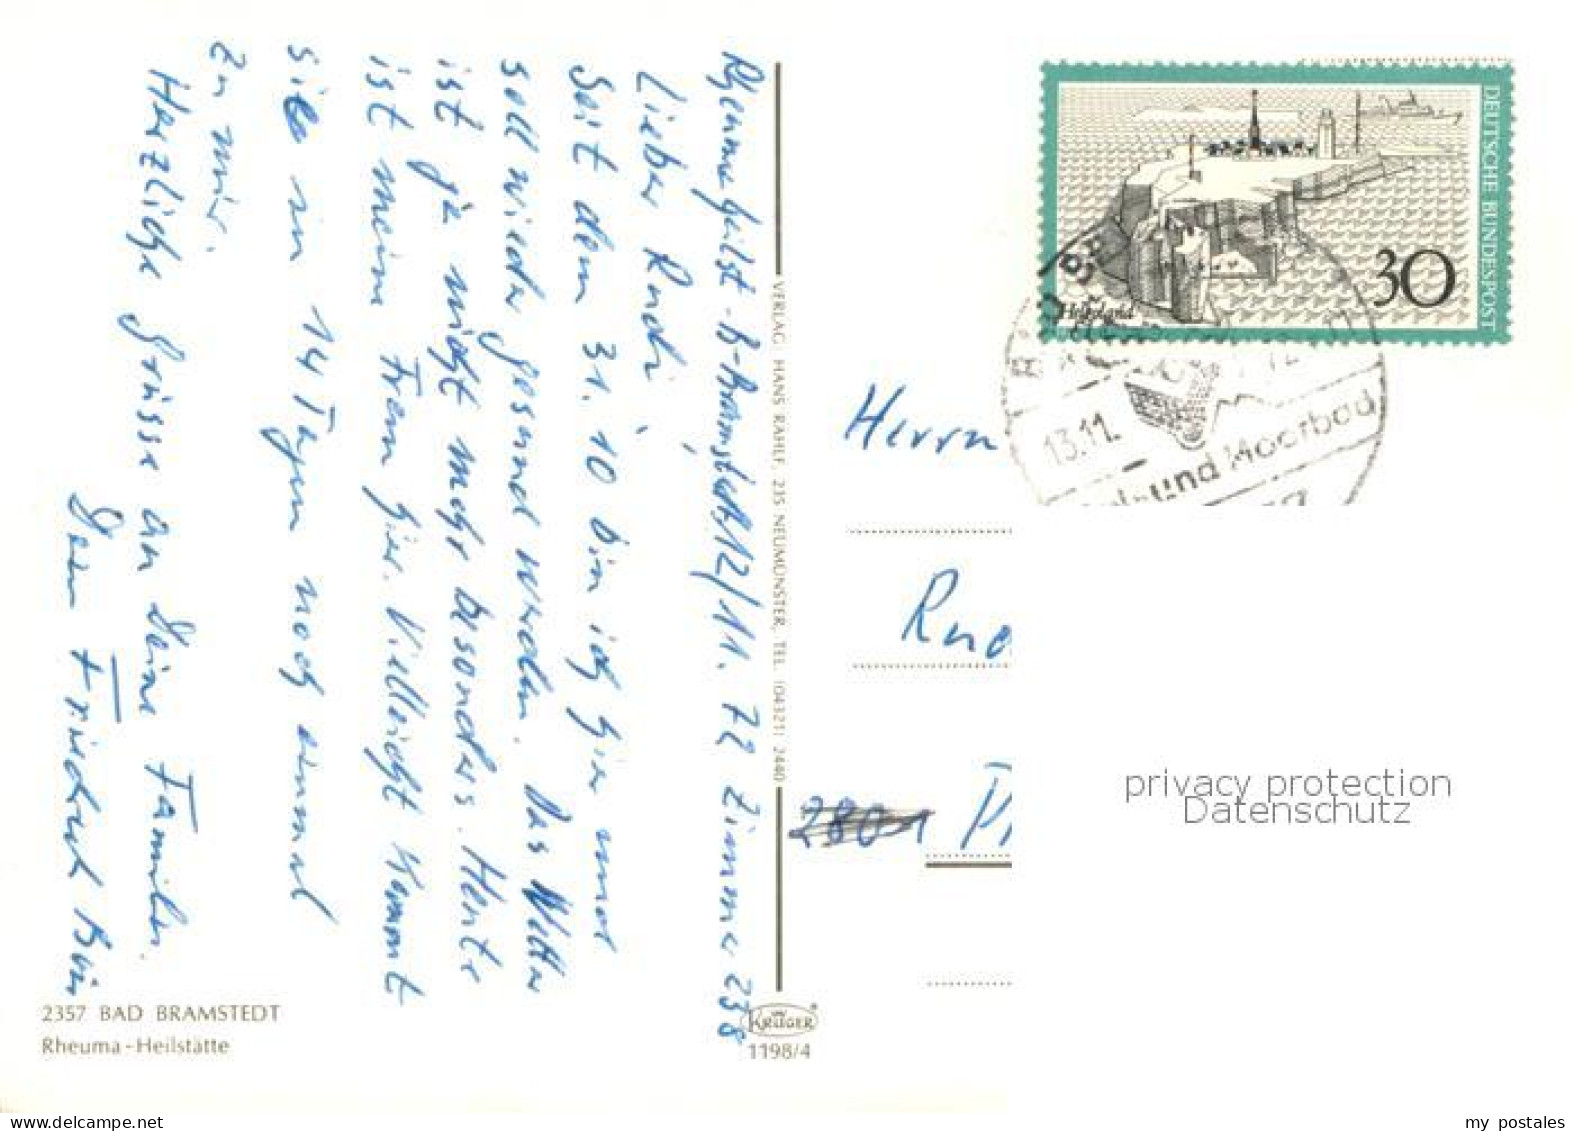 Rheumaheilst.-B-Bramstedt, 12/11. 72 Zimmer 238
Lieber Rudi,
Seit dem 31. 10 bin ich hier und
soll wieder gesund werden. Das Wetter
ist ja nicht mehr besonders. Heute
ist meine Frau hier. Vielleicht kommt
sie in 14 Tagen noch einmal
zu mir.
Herzliche Grüsse an Deine Familie.
Dein Friedrich
VERLAG HANS RAHLF, 235 NEUMÜNSTER, TEL. (04321) 2440
2357 BAD BRAMSTEDT
Rheuma-Heilstätte
KRÜGER
1198/4
DEUTSCHE BUNDESPOST
30
Helgoland
13.11.
und Moorbad
Herrn
2801
privacy protection
Datenschutz
my postales